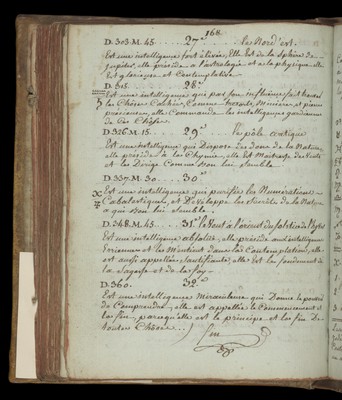 168.
D. 303. M. 45. . . . . 27.e . . . . . le Nord'est.
Est une intelligence fort élevée, Elle Est de la Sphère de
Jupiter, elle préside a l'astrologie et a la physique, elle
Est glorieuse et Contemplative
D. 315. . . . . . 28.e
Est une intelligence qui par son influence fait
les Choses Cachées, Comme trésors, Minières et pierres
precieuses, elle Commande les intelligences gardiennes
de Ces Choses
D. 326. M. 15. . . . . 29.e . . . . Le pôle
Est une intelligence qui Dispose des dons de la Nature
elle préside a la Chymie, elle Est Maitresse des
et les Dirige Comme bon lui Semble.
D. 337. M. 30. . . . . 30.e
Est une intelligence qui purifie les Numérations
Cabalistiques, et Développe les Secrets de la Nature
a qui bon lui Semble.
D. 348. M. 45. . . . . 31.e
Est une intelligence absolue, elle préside aux intelligences
et les Maintient dans la Contemplation, elle
est aussi appellée Sanctifiante, elle Est le fondement de
la Sagesse et de la foy
D. 360. . . . . . 32.e
Est une intelligence Miraculeuse qui Donne le pouvoir
de Comprendre, elle est appellée le Commencement et
la fin, parcequ'elle est le principe et la fin De
toutes Choses . . .
fin